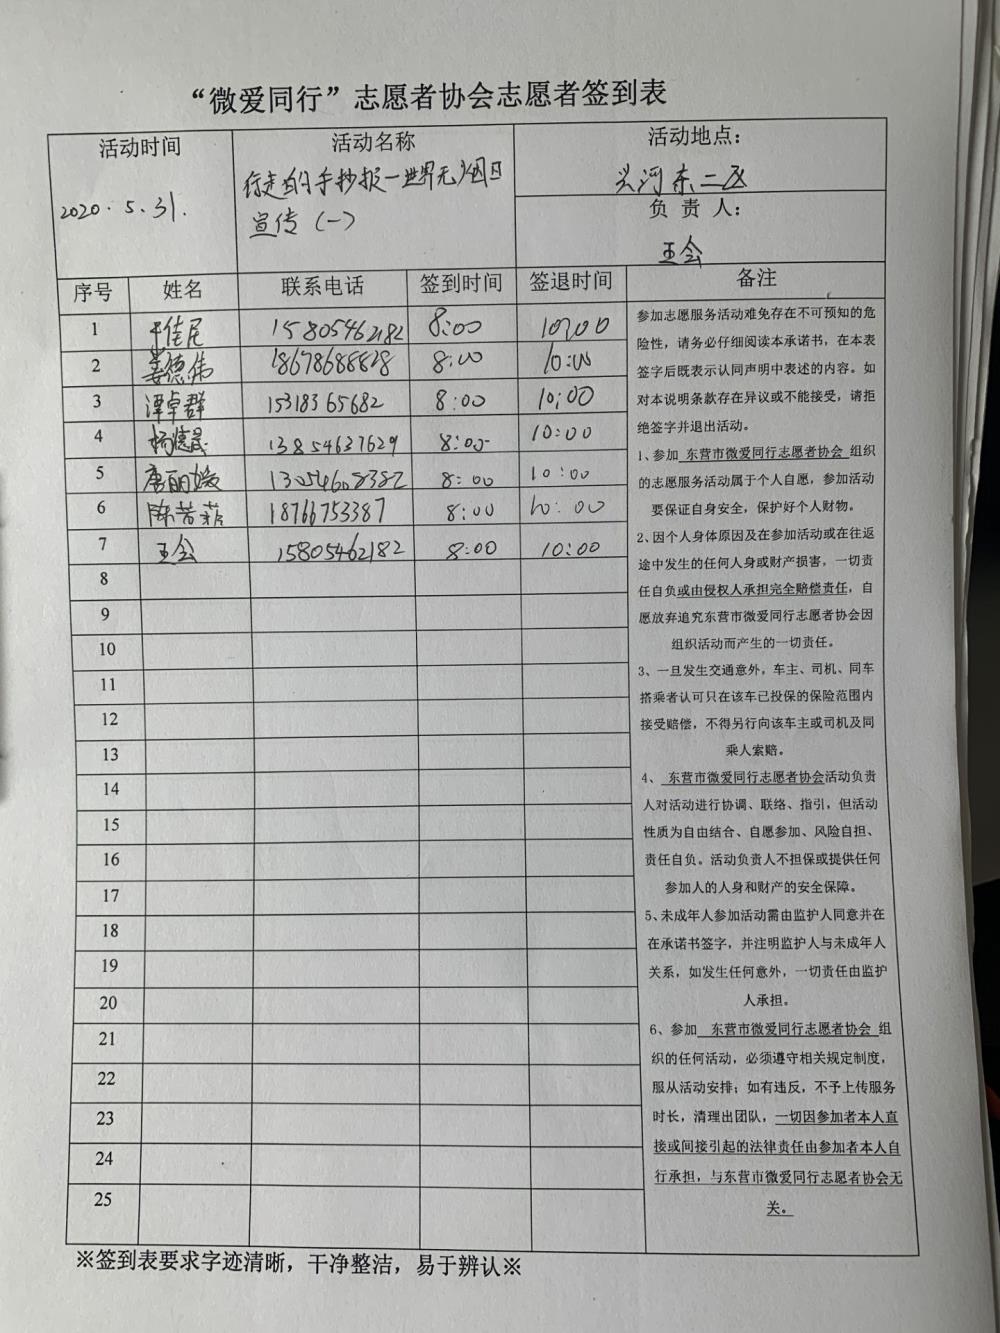 “微爱同行”志愿者协会志愿者签到表
活动时间
2020.5.31.
活动名称
行走的手抄报—世界无烟日
宣传（一）
活动地点：
河东二区
负 责 人：
王会
序号 姓名 联系电话 签到时间 签退时间 备注
1 佳尼 15805462182 8:00 10:00
2 姜德伟 18678688828 8:00 10:00
3 谭卓群 15318365682 8:00 10:00
4 杨德晟 13854637629 8:00 10:00
5 唐丽媛 13054608382 8:00 10:00
6 陈 18766753387 8:00 10:00
7 王会 15805462182 8:00 10:00
8
9
10
11
12
13
14
15
16
17
18
19
20
21
22
23
24
25
参加志愿服务活动难免存在不可预知的危
险性，请务必仔细阅读本承诺书，在本表
签字后既表示认同声明中表述的内容。如
对本说明条款存在异议或不能接受，请拒
绝签字并退出活动。
1、参加 东营市微爱同行志愿者协会 组织
的志愿服务活动属于个人自愿，参加活动
要保证自身安全，保护好个人财物。
2、因个人身体原因及在参加活动或在往返
途中发生的任何人身或财产损害，一切责
任自负或由侵权人承担完全赔偿责任，自
愿放弃追究东营市微爱同行志愿者协会因
组织活动而产生的一切责任。
3、一旦发生交通意外，车主、司机、同车
搭乘者认可只在该车已投保的保险范围内
接受赔偿，不得另行向该车主或司机及同
乘人索赔。
4、 东营市微爱同行志愿者协会活动负责
人对活动进行协调、联络、指引，但活动
性质为自由结合、自愿参加、风险自担、
责任自负。活动负责人不担保或提供任何
参加人的人身和财产的安全保障。
5、未成年人参加活动需由监护人同意并在
在承诺书签字，并注明监护人与未成年人
关系，如发生任何意外，一切责任由监护
人承担。
6、参加 东营市微爱同行志愿者协会 组
织的任何活动，必须遵守相关规定制度，
服从活动安排；如有违反，不予上传服务
时长，清理出团队，一切因参加者本人直
接或间接引起的法律责任由参加者本人自
行承担，与东营市微爱同行志愿者协会无
关。
※签到表要求字迹清晰，干净整洁，易于辨认※